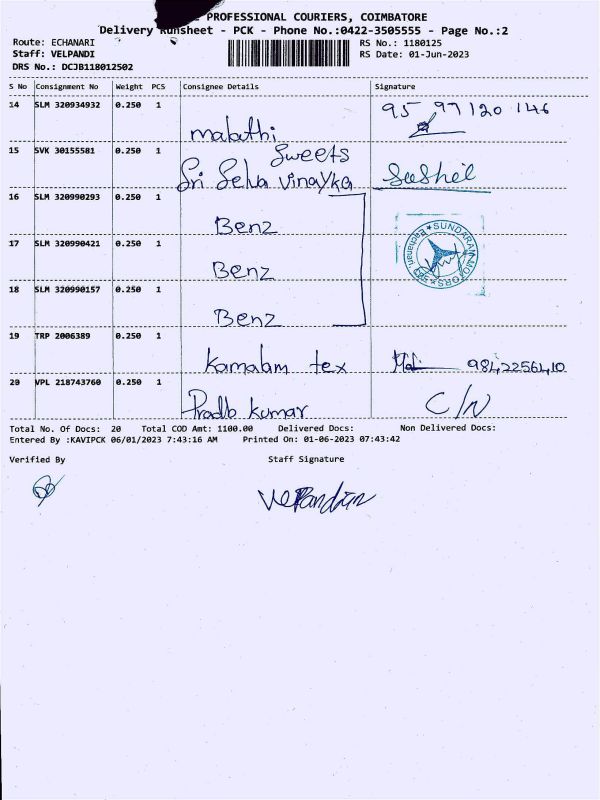 PROFESSIONAL COURIERS, COIMBATORE
Delivery Runsheet - PCK - Phone No.:0422-3505555 - Page No.:2
Route: ECHANARI
RS No.: 1180125
Staff: VELPANDI
RS Date: 01-Jun-2023
DRS No.: DCJB118012502
S No Consignment No Weight PCS Consignee Details Signature
14 SLM 320934932 0.250 1 malathi 95 97120 146
15 SVK 30155581 0.250 1 Sri Selva Vinayka Sweets Sushil
16 SLM 320990293 0.250 1 Benz
17 SLM 320990421 0.250 1 Benz
SUNDARAM MOTORS
18 SLM 320990157 0.250 1 Benz
19 TRP 2006389 0.250 1 Kamalam tex 9842256410
20 VPL 218743760 0.250 1 kumar C/N
Total No. Of Docs: 20 Total COD Amt: 1100.00 Delivered Docs: Non Delivered Docs:
Entered By :KAVIPCK 06/01/2023 7:43:16 AM Printed On: 01-06-2023 07:43:42
Verified By Staff Signature